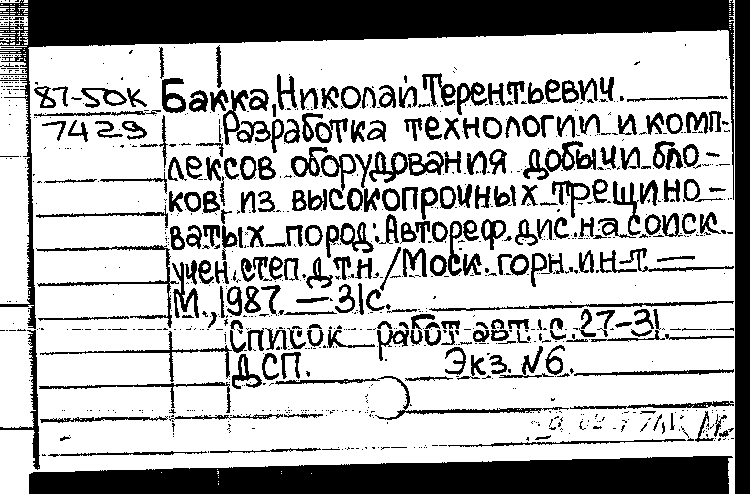 87-50К Бакка, Николай Терентьевич.
7429 Разработка технологии и комп-
лексов оборудования добычи бло-
ков из высокопрочных трещино-
ватых пород: Автореф. дис. на соиск.
учен. степ. д.т.н. / Моск. горн. ин-т. —
М., 1987. — 31с.
Список работ авт.: с. 27-31.
ДСП. Экз. №6.